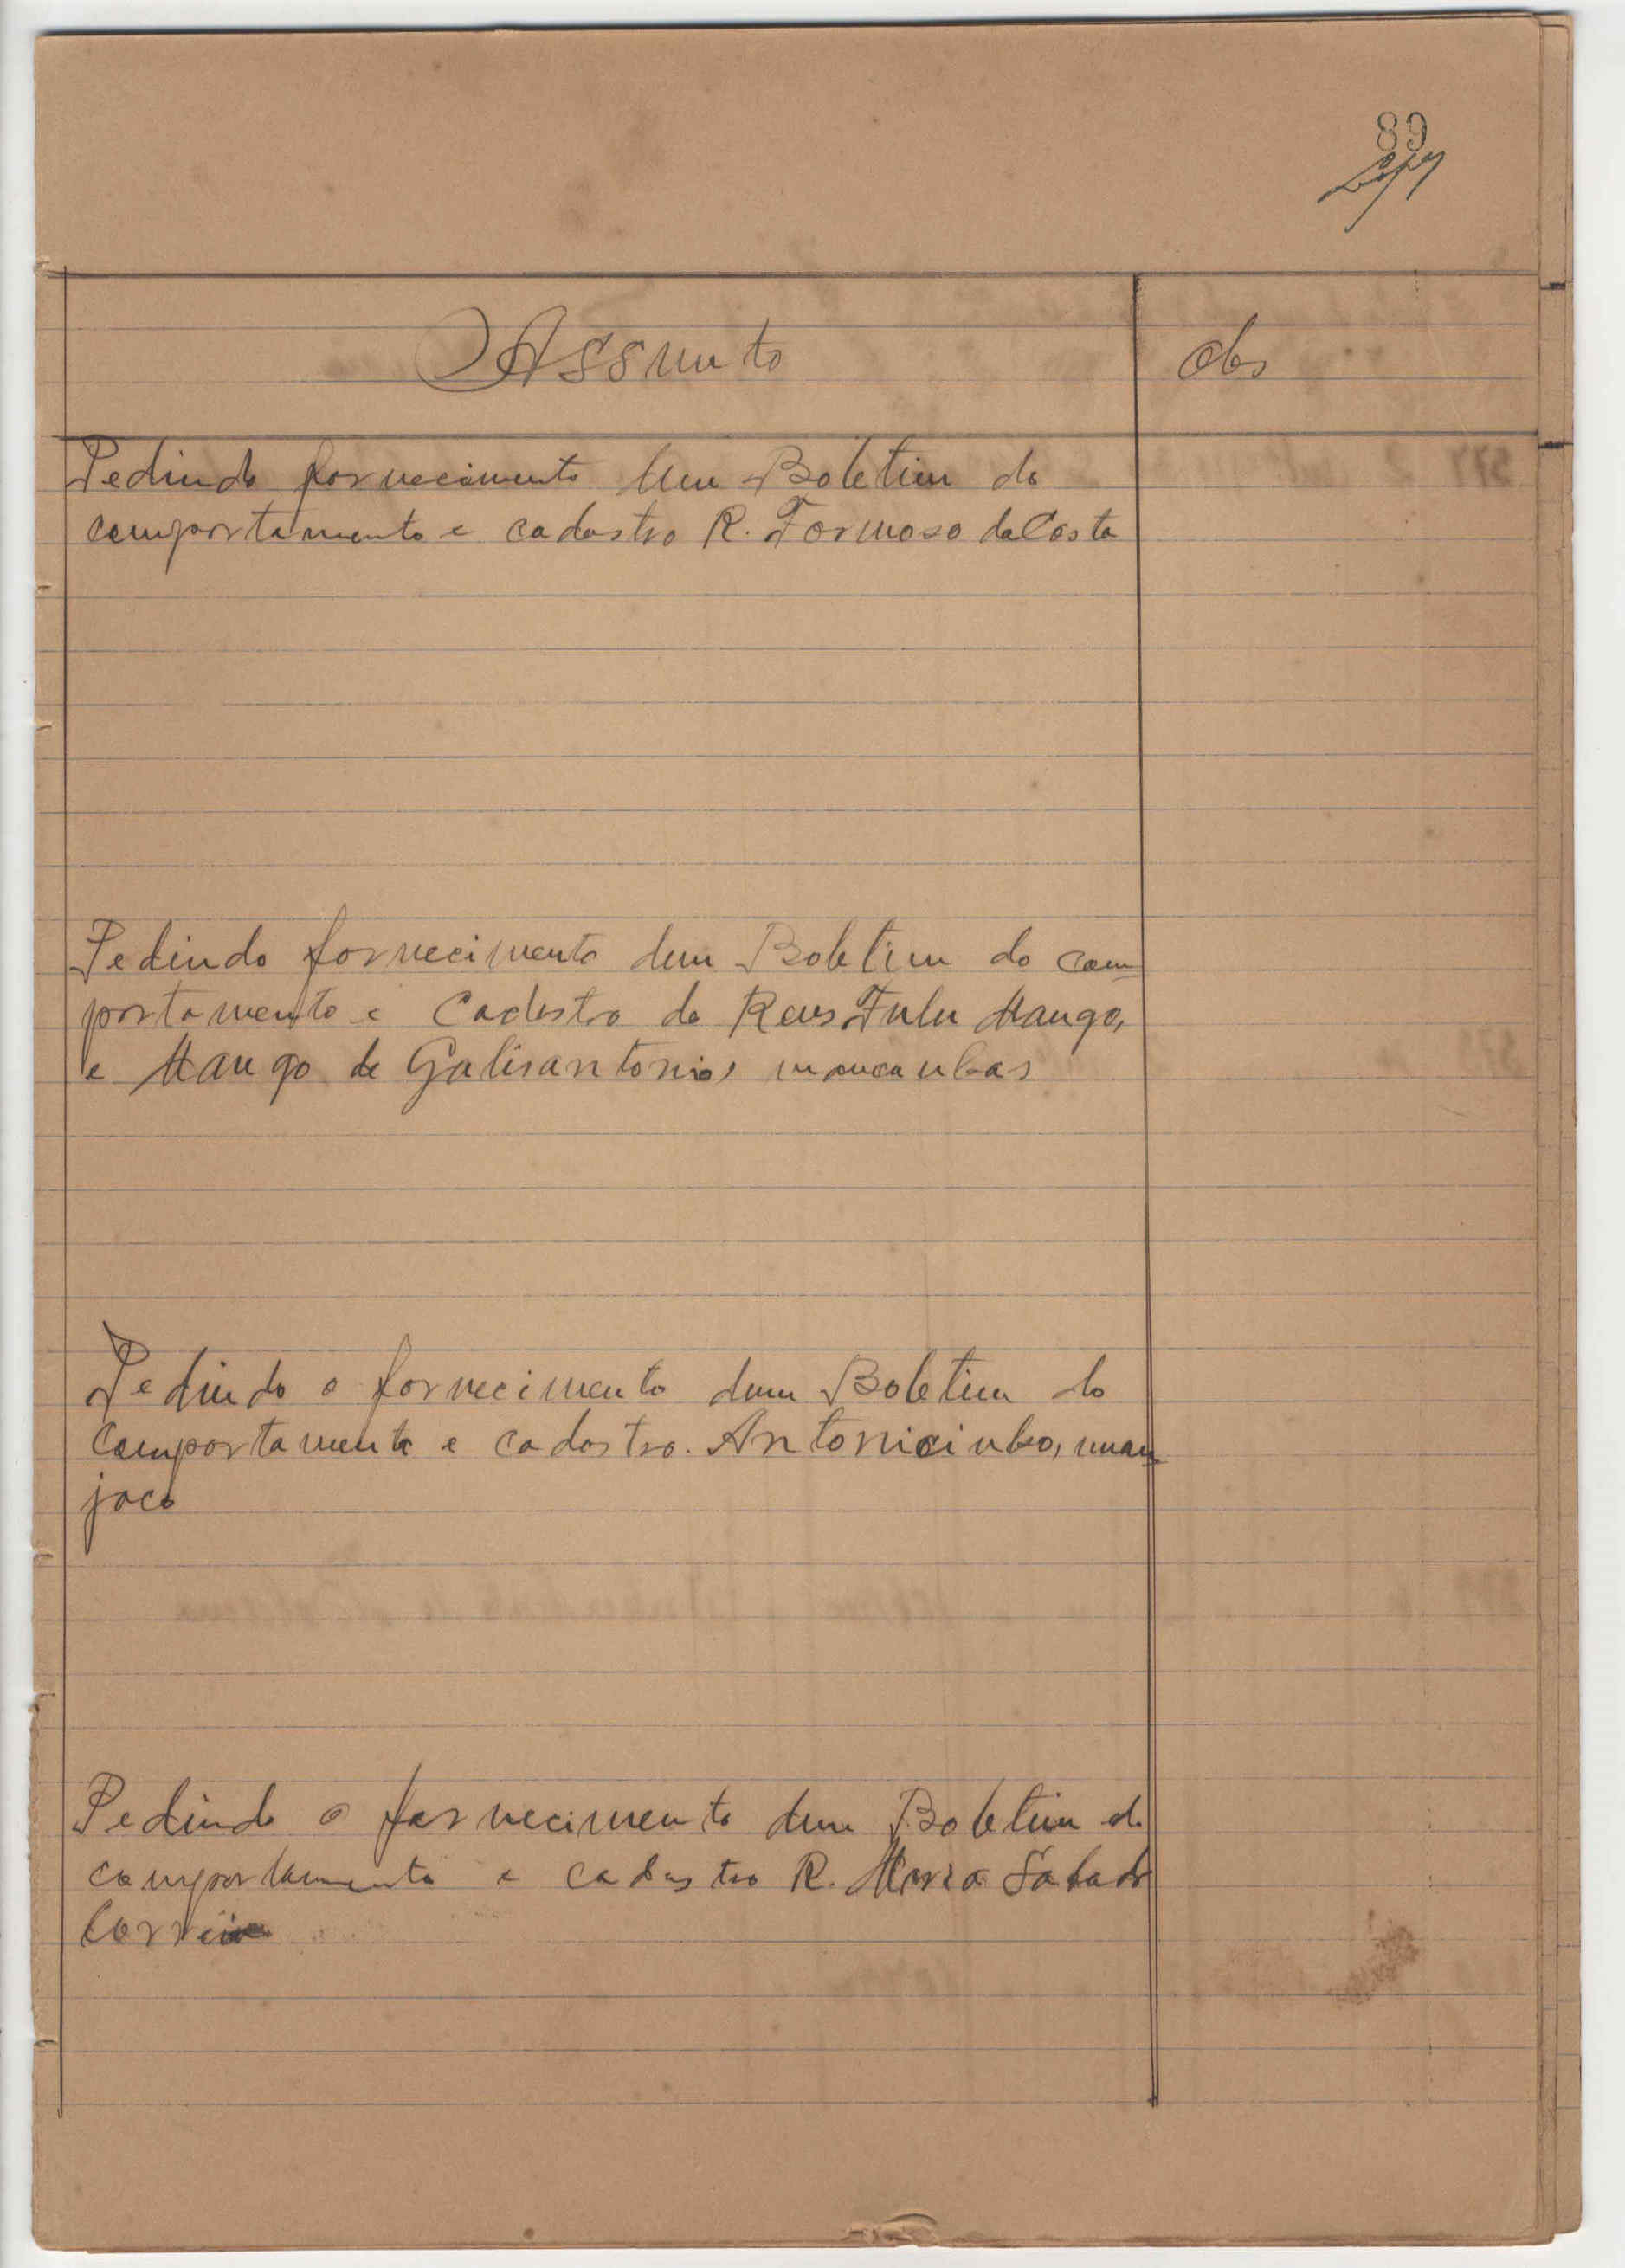 89
Assunto
obs
Pedindo fornecimento dum Boletim do
comportamento e cadastro R. Formoso da Costa
Pedindo fornecimento dum Boletim do com
portamento e Cadastro do Reus Fulu Mango,
e Mango de Galisantonio,
Pedindo o fornecimento dum Boletim do
comportamento e cadastro. Antonicinho, man
jaco
Pedindo o fornecimento dum Boletim do
comportamento e cadastro R. Maria Sabado
Correia